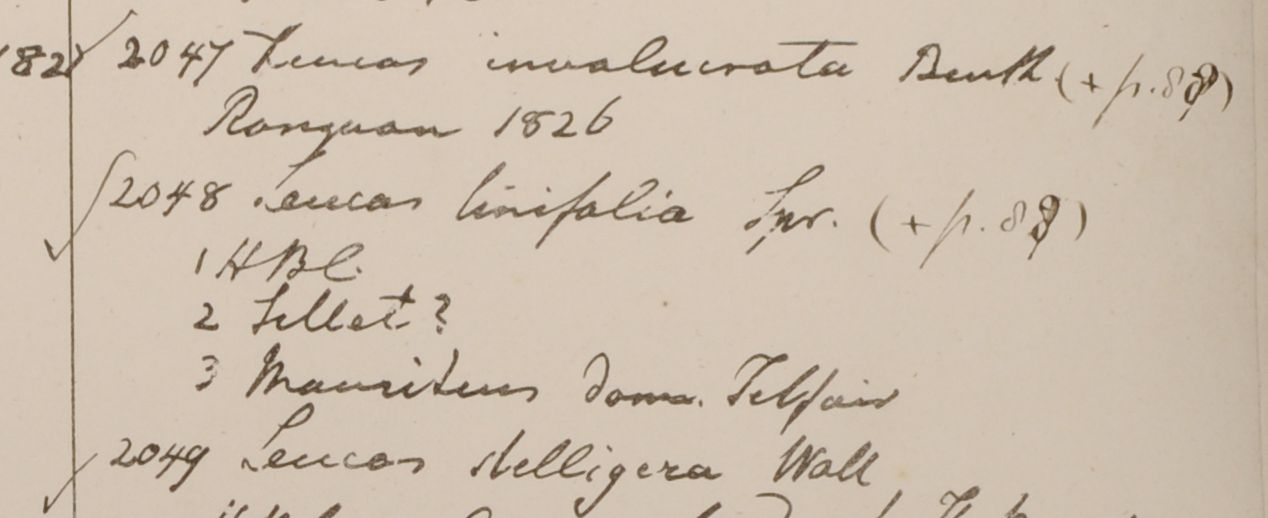 182 2047 Leucas involucrata Benth (+ p. 88)
Rangoon 1826
2048 Leucas linifolia Spr. (+ p. 88)
1 HBC.
2 Sillet?
3 Mauritius Dom. Telfair
2049 Leucas stelligera Wall